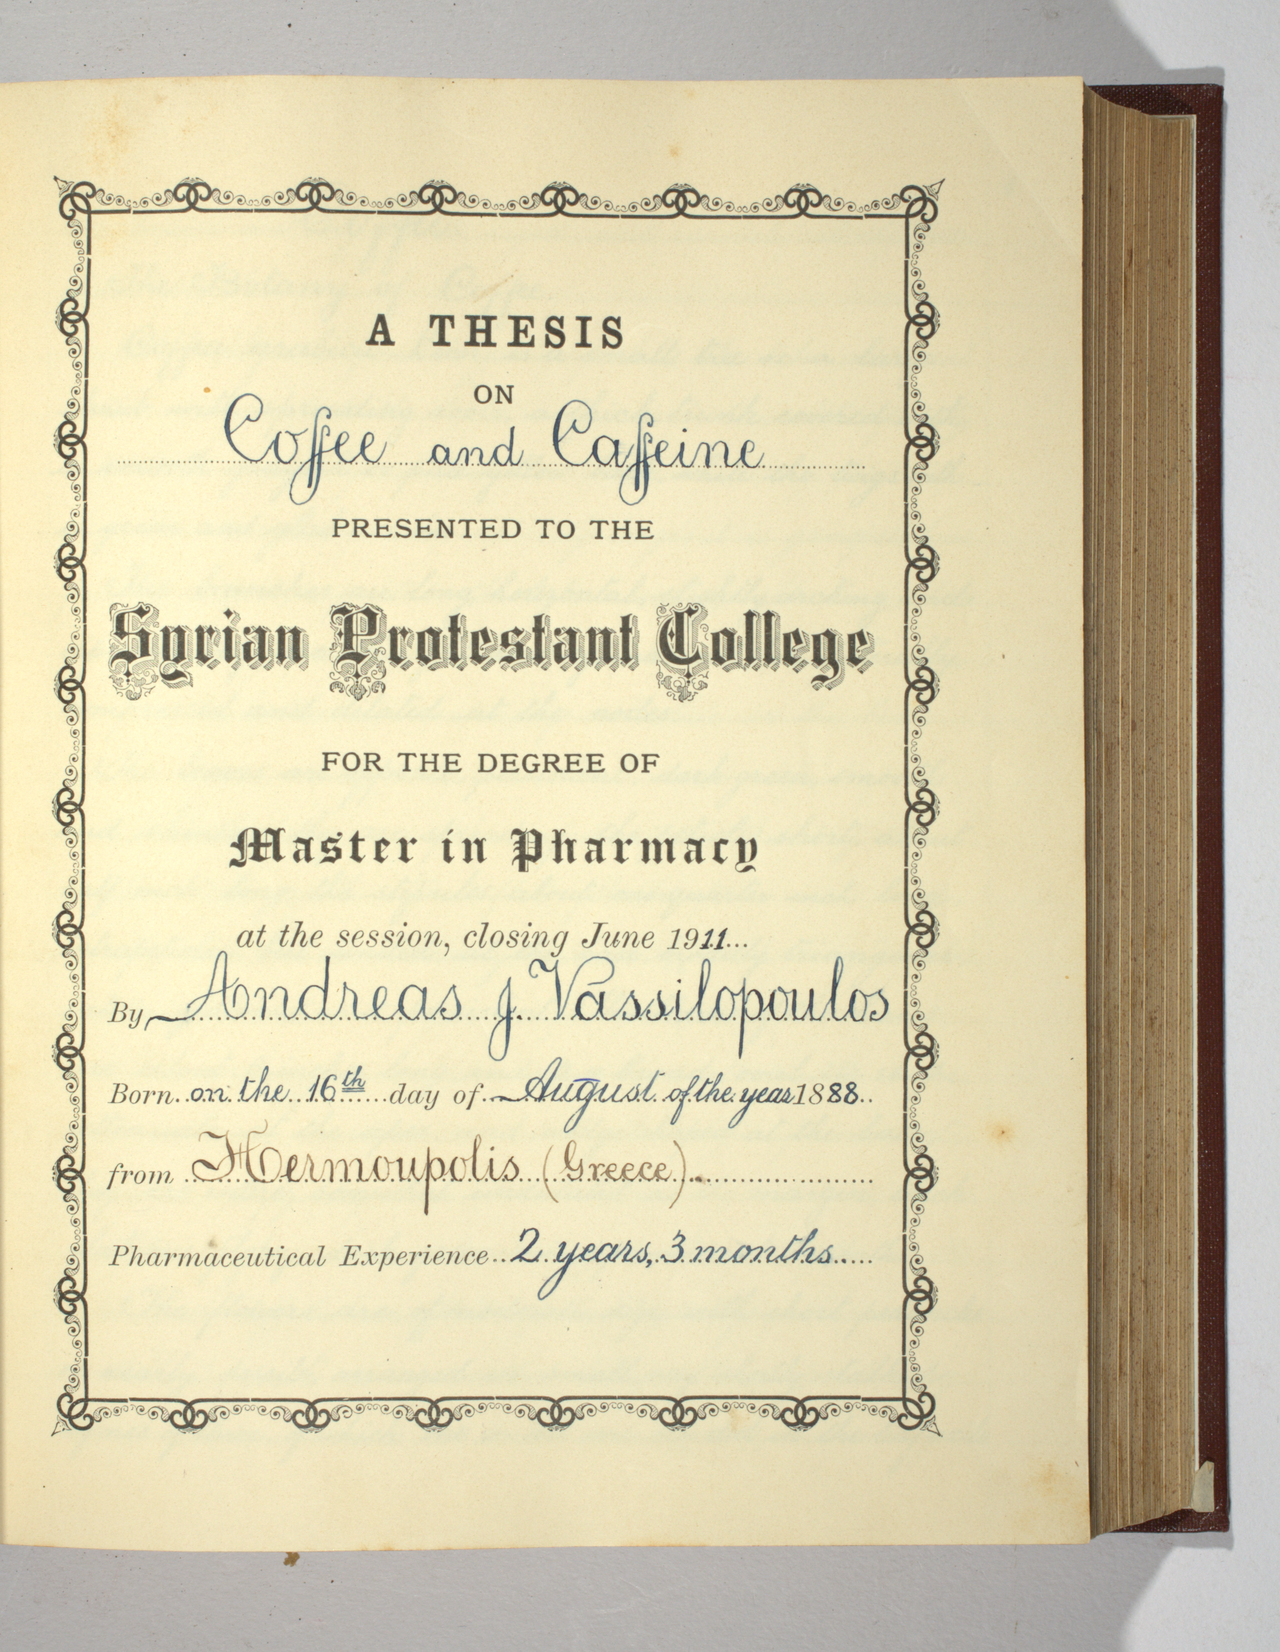 A THESIS
ON
Coffee and Caffeine
PRESENTED TO THE
Syrian Protestant College
FOR THE DEGREE OF
Master in Pharmacy
at the session, closing June 1911...
By Andreas J. Vassilopoulos
Born on the 16th day of August of the year 1888
from Hermoupolis (Greece)
Pharmaceutical Experience 2 years, 3 months